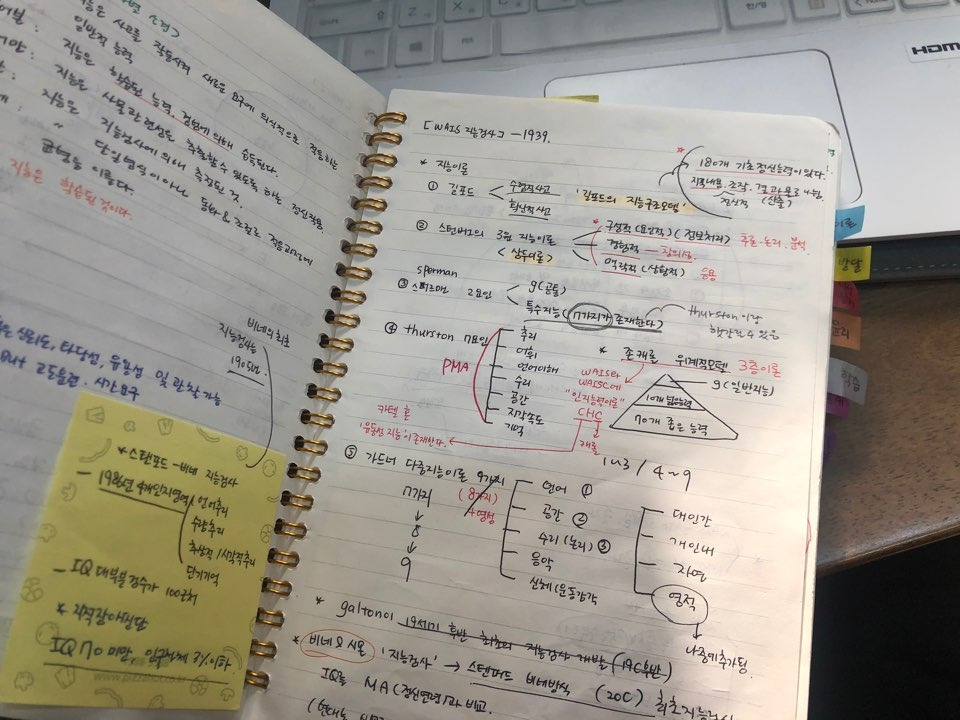 지능은 사고를 작동시켜 새로운 요구에 의식적으로 적응하는
일반적 능력
지능은 학습된 능력, 경험에 의해 습득된다.
지능은 사물과 관련성을 추출할 수 있도록 하는 정신작용.
지능은 지능검사에 의해 측정된 것.
" 단일영역이 아닌 동화 & 조절로 적응과정에
균형을 이룬다.
지능은 학습된 것이다.
비네의 최초
지능검사는
1905년.
신뢰도, 타당성, 유용성 및 관찰 가능
but 고도훈련. 시간요구
* 스탠포드-비네 지능검사
- 1986년 4개인지영역
언어추리
수량추리
추상적/시각적추리
단기기억
- IQ 대부분 점수가 100근처
* 지적장애진단
IQ 70 미만, 인구전체 3%이하
[WAIS 지능검사] - 1939.
* 지능이론
① 길포드
수렴적사고
확산적사고
'길포드의 지능구조모델'
* 180개 기초정신능력이 있다.
내용. 조작. 결과물로 나눔.
정신적 (산출)
② 스턴버그의 3원 지능이론
<삼두이론>
* 구성적(요인적)(정보처리) 추론·논리·분석
경험적 — 창의성.
맥락적(상황적) 응용
sperman
③ 스피르만 2요인
g(공통)
특수지능 (7가지가 존재한다)
thurston이랑
헷갈릴 수 있음
④ thurston 7요인
PMA
추리
어휘
언어이해
수리
공간
지각속도
기억
* 존캐롤 위계적모델 3층이론
WAIS와
WAISC에
"인지능력이론"
CHC
캐롤
카텔 혼
'유동성 지능'이 존재한다.
g(일반지능)
10개 넓은능력
70개 좁은 능력
1u3 / 4~9
⑤ 가드너 다중지능이론 9가지
(8가지)
+영성
7가지
↓
8
↓
9
언어 ①
공간 ②
수리(논리) ③
음악
신체/운동감각
대인간
개인내
자연
영적
나중에 추가됨.
* galton이 19세기 후반 최초의 지능검사 개발 (19C후반)
* 비네&시몬 '지능검사' → 스탠퍼드 비네방식 (20C) 최초지능검사
IQ를 MA(정신연령)과 비교.
HDMI
발달
학습